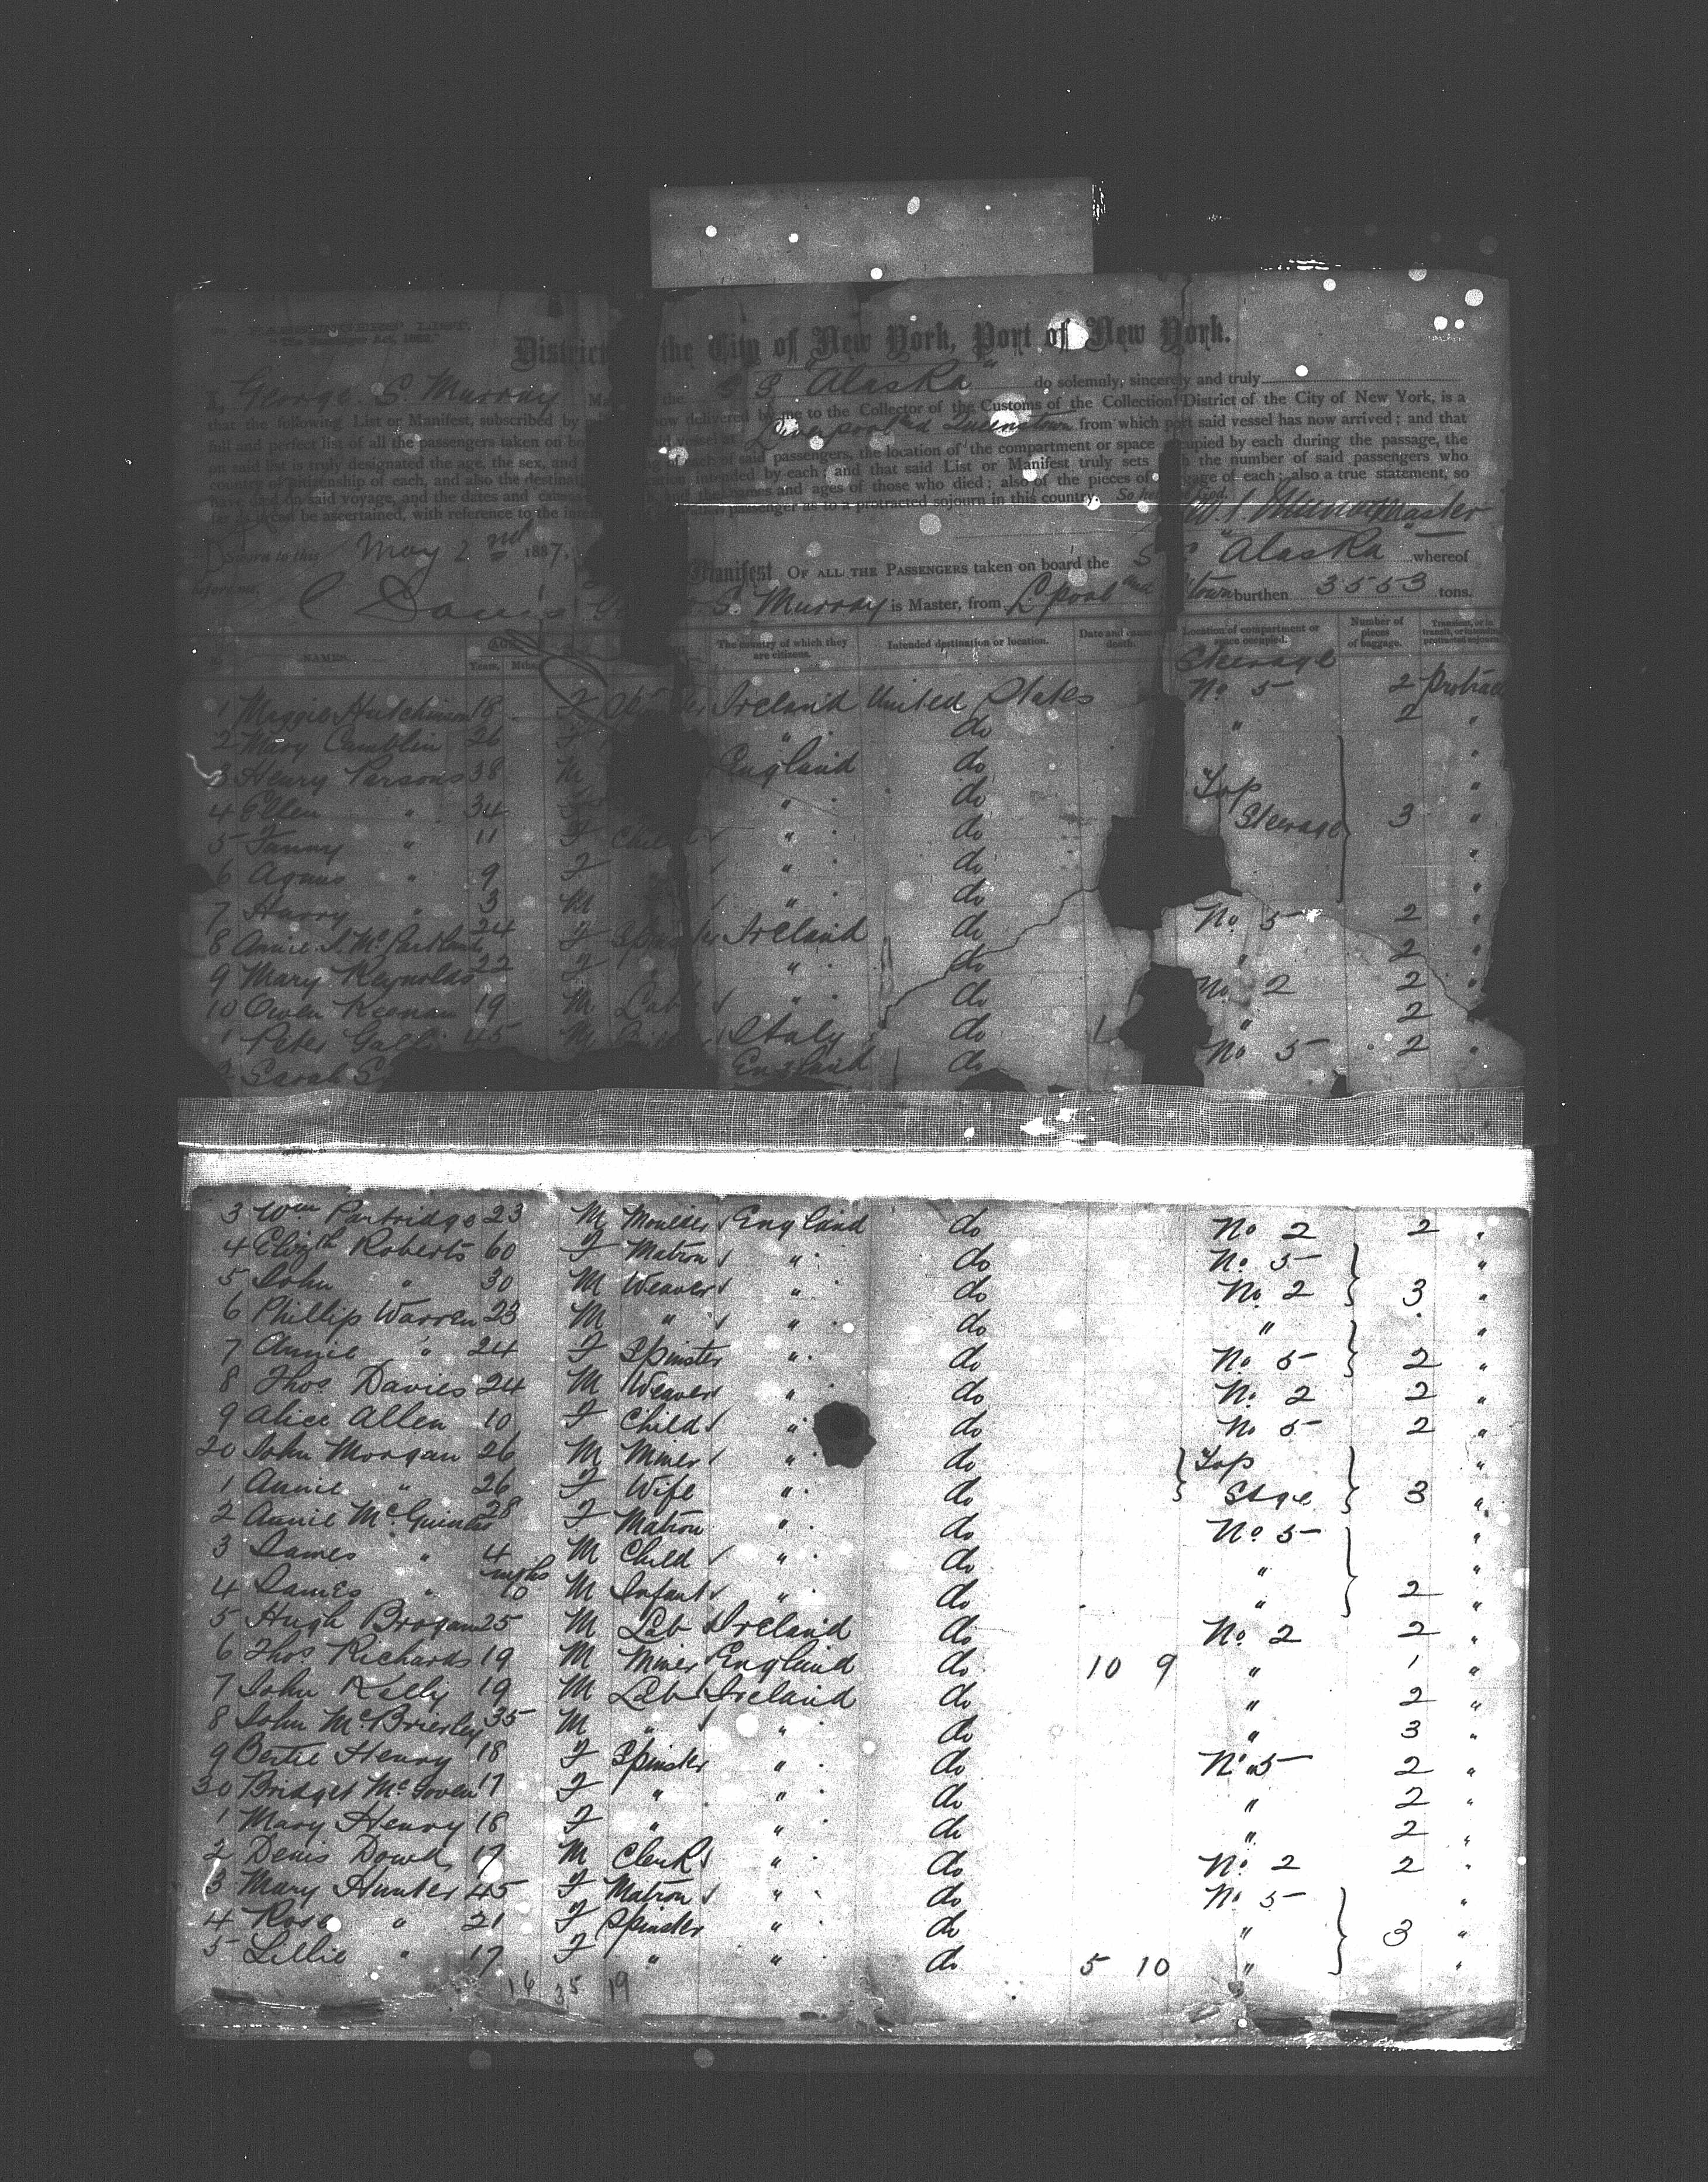 PASSENGERS' LIST.
"The Passenger Act, 1882."
District the City of New York, Port of New York.
I, George S. Murray Ma the S S "Alaska" do solemnly, sincerely and truly
that the following List or Manifest, subscribed by now delivered by me to the Collector of the Customs of the Collection District of the City of New York, is a
full and perfect list of all the passengers taken on bo vessel at Liverpool and Queenstown from which port said vessel has now arrived; and that
on said list is truly designated the age, the sex, and of each of said passengers, the location of the compartment or space occupied by each during the passage, the
country of citizenship of each, and also the destinat intended by each; and that said List or Manifest truly sets the number of said passengers who
have died on said voyage, and the dates and cause the names and ages of those who died; also of the pieces of baggage of each; also a true statement, so
far as it can be ascertained, with reference to the inten passenger as to a protracted sojourn in this country. So help God.
Murray Master
Sworn to this May 2nd 1887,
before me, C Davis
Manifest OF ALL THE PASSENGERS taken on board the S S "Alaska" whereof
S. Murray is Master, from L'pool and town burthen 3553 tons.
NAMES. AGE Years. Mths. The country of which they are citizens. Intended destination or location. Date and cause of death. Location of compartment or space occupied. Number of pieces of baggage. Transient, or in transit, or intending protracted sojourn
Steerage
1 Maggie Hutchinson 18 F Spinster Ireland United States No. 5 2 Protrac
2 Mary Camblin 26 F " do " 2 "
3 Henry Parsons 38 M England do "
4 Ellen " 34 " do Top "
5 Fanny " 11 F Child " do Steerage 3 "
6 Agnes " 9 F " do "
7 Harry " 3 M " do "
8 Annie J. McPartland 24 F Spinster Ireland do No. 5 2 "
9 Mary Reynolds 22 F " do " 2 "
10 Owen Keenan 19 M Lab " do No. 2 2 "
1 Peter Galli 45 M Italy do " 2
2 Sarah S England do No. 5 2 "
3 Wm Partridge 23 M Moulder England do No 2 2 "
4 Elizth Roberts 60 F Matron " do No. 5 "
5 John " 30 M Weaver " do No. 2 3 "
6 Phillip Warren 23 M " " do " "
7 Annie " 24 F Spinster " do No. 5 2 "
8 Thos. Davies 24 M Weaver " do No. 2 2 "
9 Alice Allen 10 F Child " do No 5 2 "
20 John Morgan 26 M Miner " do Top "
1 Annie " 26 F Wife " do Stge 3 "
2 Annie McGuinness 28 F Matron " do No. 5 "
3 James " 4 M Child " do " "
4 James " mths 10 M Infant " do " 2 "
5 Hugh Brogan 25 M Lab Ireland do No. 2 2 "
6 Thos Richards 19 M Miner England do 10 9 " 1 "
7 John Kelly 19 M Lab Ireland do " 2 "
8 John McBrierley 35 M " " do " 3 "
9 Bertie Henry 18 F Spinster " do No. 5 2 "
30 Bridget McGoven 17 F " " do " 2 "
1 Mary Henry 18 F " " do " 2 "
2 Denis Dowd 17 M Clerk " do No. 2 2 "
3 Mary Hunter 45 F Matron " do No. 5 "
4 Rose " 21 F Spinster " do " 3 "
5 Lillie " 17 F " " do 5 10 " "
16 35 19